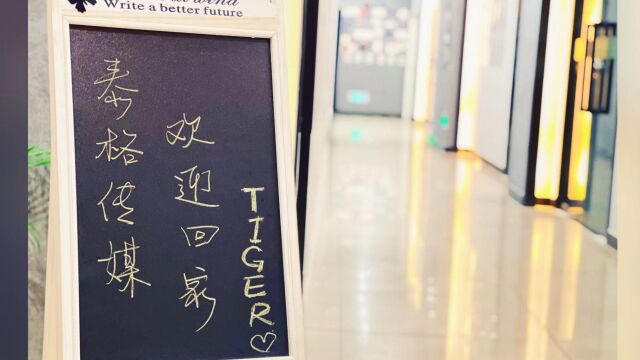 wind
Write a better future
泰格传媒
欢迎回家
TIGER